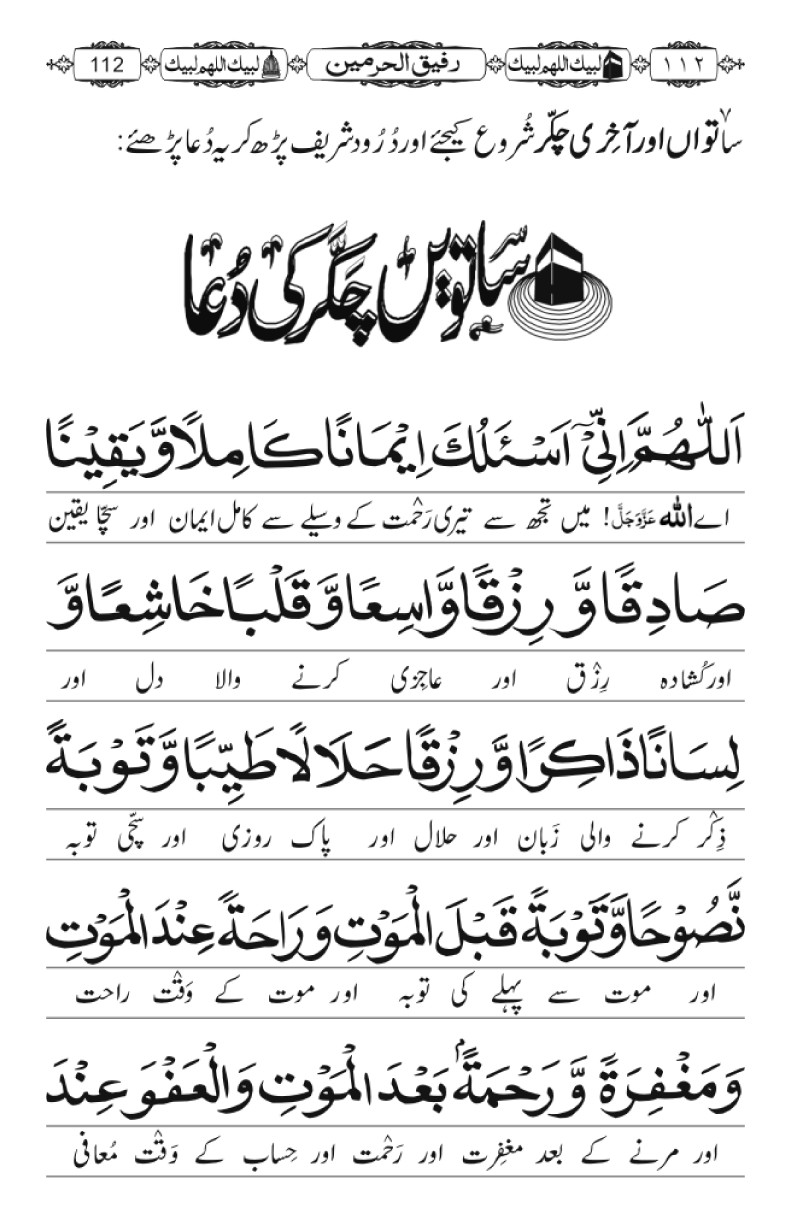 ١١٢ لبيك اللهم لبيك رفیق الحرمین لبيك اللهم لبيك 112
ساتواں اور آخِری چکّر شُروع کیجئے اور دُرُود شریف پڑھ کر یہ دُعا پڑھئے:
ساتویں چکّر کی دُعا
اَللّٰهُمَّ اِنِّیْۤ اَسْئَلُكَ اِیْمَانًا كَامِلًا وَّ یَقِیْنًا
اے اللّٰه عَزَّوَجَلَّ! میں تجھ سے تیری رَحْمت کے وسیلے سے کامل ایمان اور سچّا یقین
صَادِقًا وَّ رِزْقًا وَّاسِعًا وَّ قَلْبًا خَاشِعًا وَّ
اور کُشادہ رِزْق اور عاجِزی کرنے والا دل اور
لِسَانًا ذَاكِرًا وَّ رِزْقًا حَلَالًا طَیِّبًا وَّ تَوْبَةً
ذِکْر کرنے والی زَبان اور حلال اور پاک روزی اور سچّی توبہ
نَّصُوْحًا وَّ تَوْبَةً قَبْلَ الْمَوْتِ وَ رَاحَةً عِنْدَ الْمَوْتِ
اور موت سے پہلے کی توبہ اور موت کے وَقْت راحت
وَ مَغْفِرَةً وَّ رَحْمَةًۢ بَعْدَ الْمَوْتِ وَ الْعَفْوَ عِنْدَ
اور مرنے کے بعد مغفِرت اور رَحْمت اور حِساب کے وَقْت مُعافی